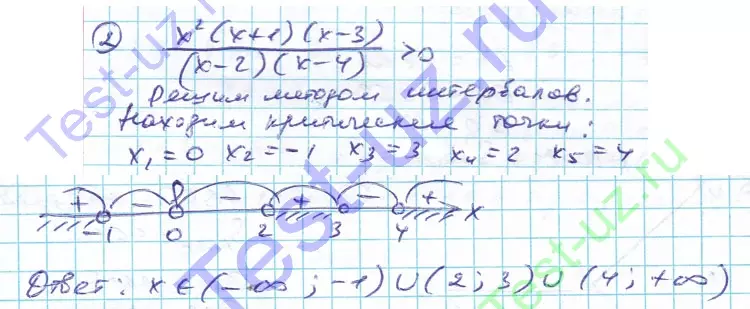 ② x²(x+1)(x-3) / (x-2)(x-4) >0
Решим методом интервалов.
Находим критические точки:
x₁=0 x₂=-1 x₃=3 x₄=2 x₅=4
+ - - + - +
-1 0 2 3 4 x
Ответ: x ∈ (-∞; -1) ∪ (2; 3) ∪ (4; +∞)
Test-uz.ru
Test-uz.ru
Test-uz.ru